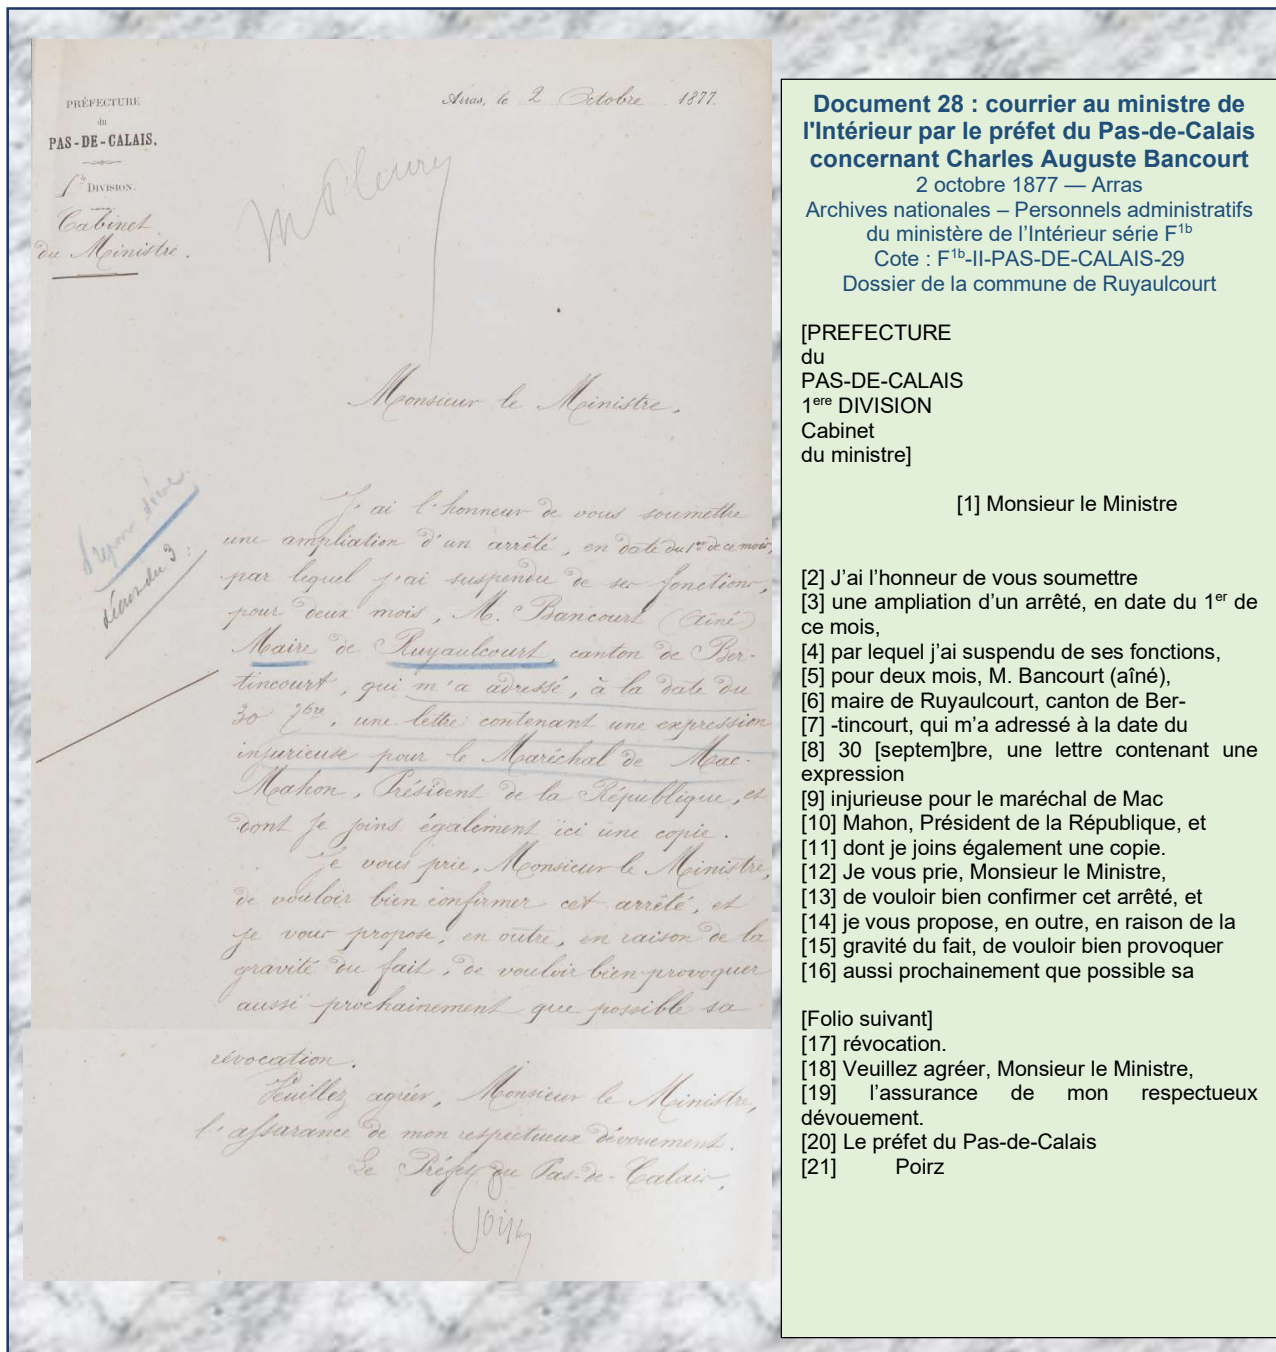 PRÉFECTURE
du
PAS-DE-CALAIS.
1re DIVISION.
Cabinet
du Ministre.
Arras, le 2 Octobre 1877.
Monsieur le Ministre,
J'ai l'honneur de vous soumettre
une ampliation d'un arrêté, en date du 1er de ce mois,
par lequel j'ai suspendu de ses fonctions,
pour deux mois, M. Bancourt (aîné)
Maire de Ruyaulcourt, canton de Ber-
tincourt, qui m'a adressé, à la date du
30 7bre, une lettre contenant une expression
injurieuse pour le Maréchal de Mac-
Mahon, Président de la République, et
dont je joins également ici une copie.
Je vous prie, Monsieur le Ministre,
de vouloir bien confirmer cet arrêté, et
je vous propose, en outre, en raison de la
gravité du fait, de vouloir bien provoquer
aussi prochainement que possible sa
révocation.
Veuillez agréer, Monsieur le Ministre,
l'assurance de mon respectueux dévouement.
Le Préfet du Pas-de-Calais,
Document 28 : courrier au ministre de
l'Intérieur par le préfet du Pas-de-Calais
concernant Charles Auguste Bancourt
2 octobre 1877 — Arras
Archives nationales – Personnels administratifs
du ministère de l'Intérieur série F1b
Cote : F1b-II-PAS-DE-CALAIS-29
Dossier de la commune de Ruyaulcourt
[PREFECTURE
du
PAS-DE-CALAIS
1ere DIVISION
Cabinet
du ministre]
[1] Monsieur le Ministre
[2] J'ai l'honneur de vous soumettre
[3] une ampliation d'un arrêté, en date du 1er de
ce mois,
[4] par lequel j'ai suspendu de ses fonctions,
[5] pour deux mois, M. Bancourt (aîné),
[6] maire de Ruyaulcourt, canton de Ber-
[7] -tincourt, qui m'a adressé à la date du
[8] 30 [septem]bre, une lettre contenant une
expression
[9] injurieuse pour le maréchal de Mac
[10] Mahon, Président de la République, et
[11] dont je joins également une copie.
[12] Je vous prie, Monsieur le Ministre,
[13] de vouloir bien confirmer cet arrêté, et
[14] je vous propose, en outre, en raison de la
[15] gravité du fait, de vouloir bien provoquer
[16] aussi prochainement que possible sa
[Folio suivant]
[17] révocation.
[18] Veuillez agréer, Monsieur le Ministre,
[19] l'assurance de mon respectueux
dévouement.
[20] Le préfet du Pas-de-Calais
[21] Poirz